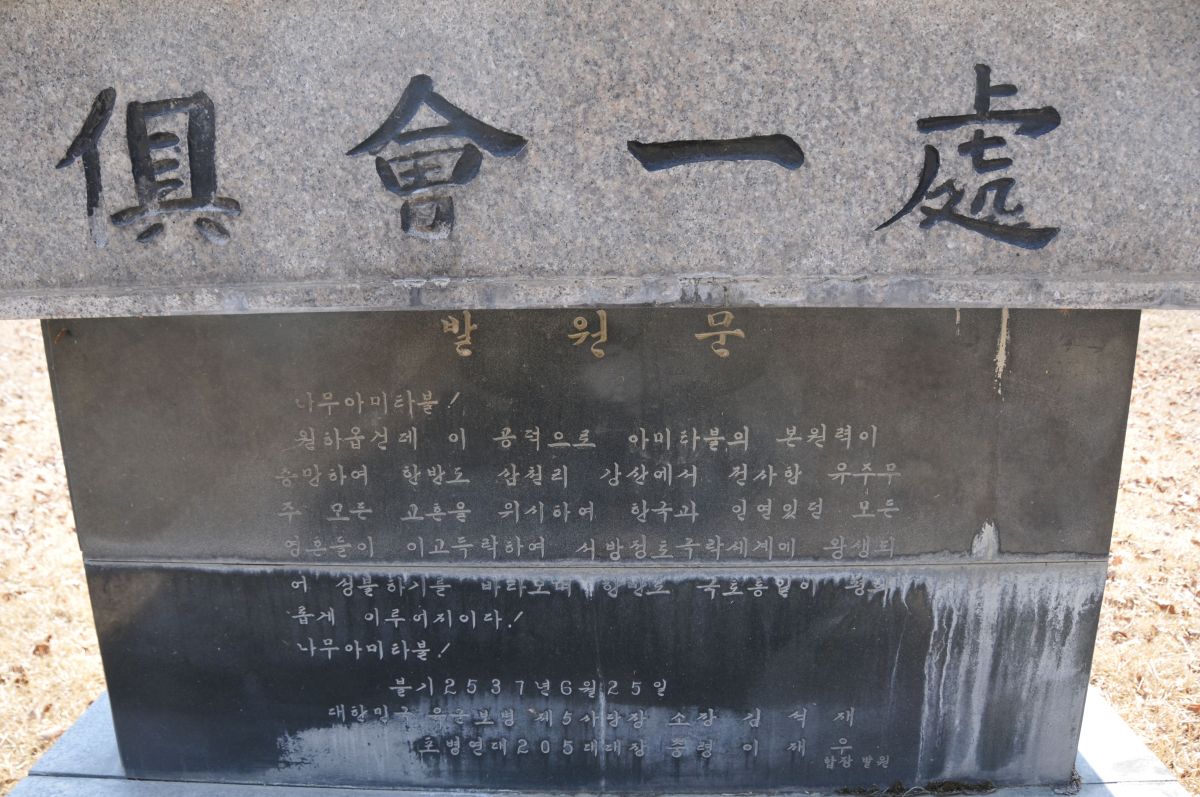 俱會一處
발원문
나무아미타불!
원하옵건데 이 공덕으로 아미타불의 본원력이
충만하여 한반도 삼천리 강산에서 전사한 유주무
주 모든 고혼을 위시하여 한국과 인연있던 모든
영혼들이 이고득락하여 서방정토극락세계에 왕생되
어 성불하기를 바라오며 한반도 국토통일이 평화
롭게 이루어지이다!
나무아미타불!
불기2537년6월25일
대한민국 육군보병 제5사단장 소장 김 석 재
포병연대205대대장 중령 이 재 우
합장 발원